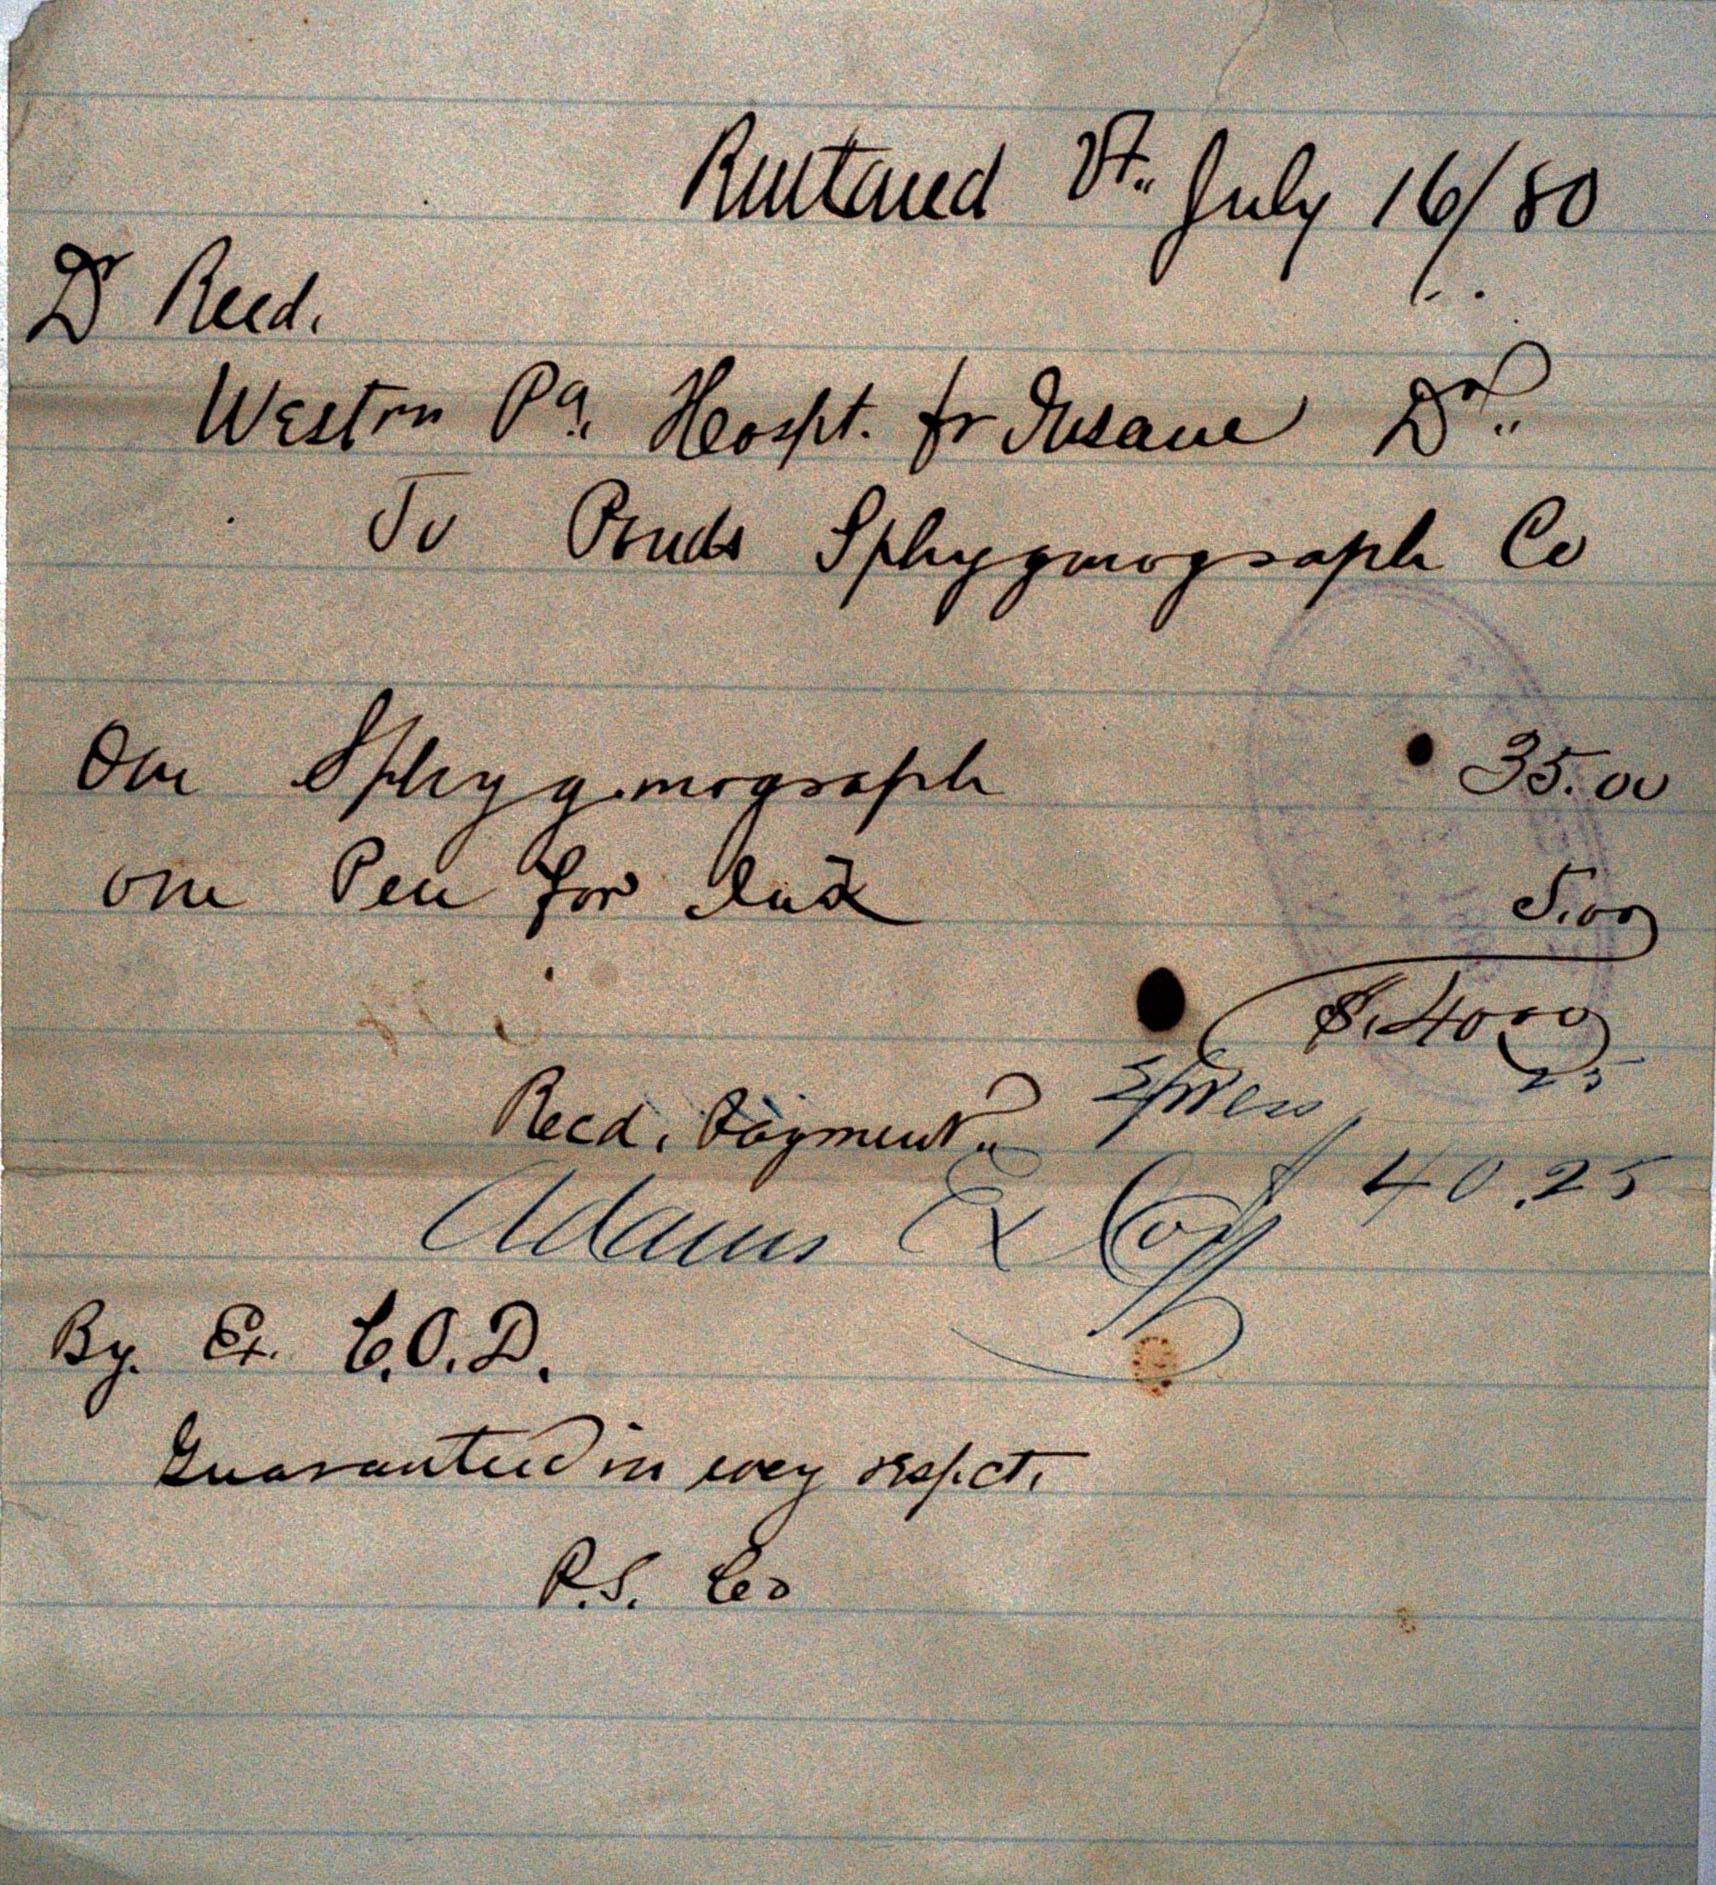 Rutland Vt. July 16/80
Dr Reed.
Westrn Pa. Hospt. fr Insane Dr.
To Ponds Sphygmograph Co
One Sphygmograph 35.00
one Pen for Ink 5.00
$.40 00
Express 25
Recd. Payment.
$ 40.25
Adams Ex Co
By. Ex. C.O.D.
Guaranteed in every respect.
P.S. Co